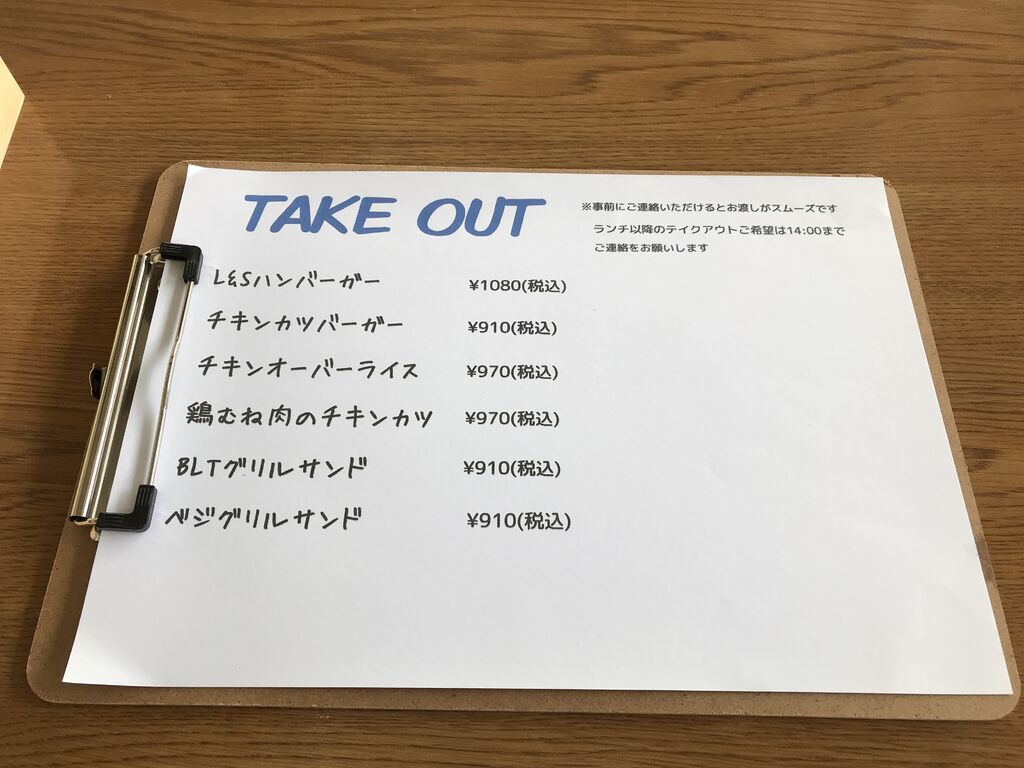 TAKE OUT
※事前にご連絡いただけるとお渡しがスムーズです
ランチ以降のテイクアウトご希望は14:00まで
ご連絡をお願いします
L&Sハンバーガー ¥1080(税込)
チキンカツバーガー ¥910(税込)
チキンオーバーライス ¥970(税込)
鶏むね肉のチキンカツ ¥970(税込)
BLTグリルサンド ¥910(税込)
ベジグリルサンド ¥910(税込)